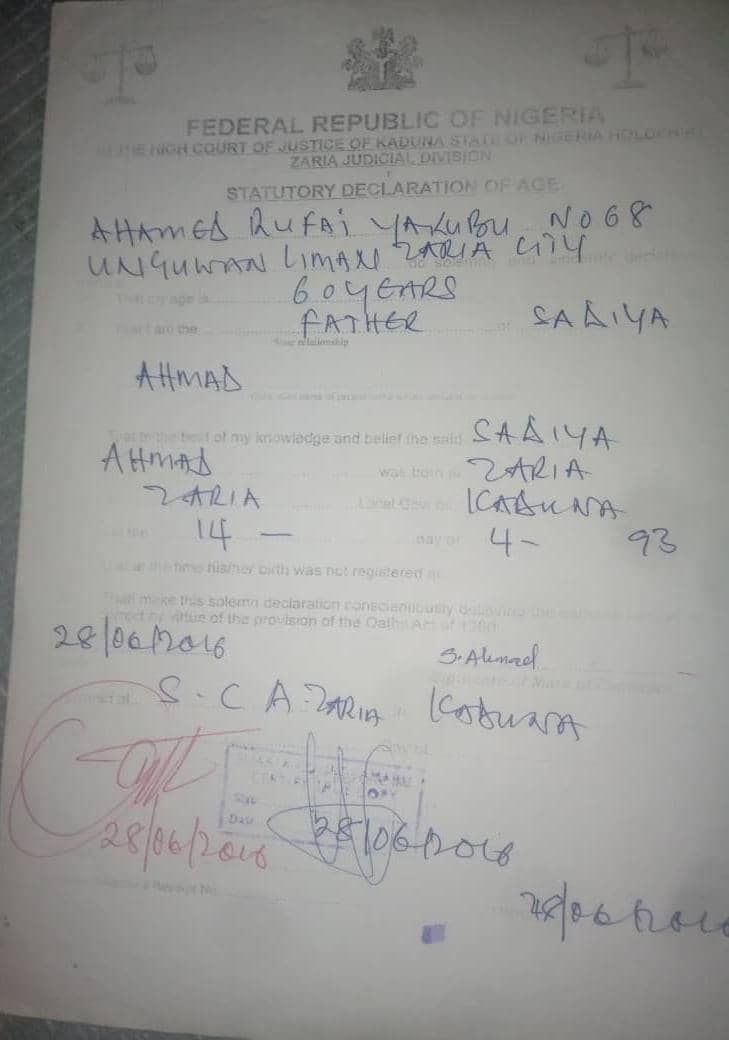 FEDERAL REPUBLIC OF NIGERIA
IN THE HIGH COURT OF JUSTICE OF KADUNA STATE OF NIGERIA HOLDEN AT
ZARIA JUDICIAL DIVISION
STATUTORY DECLARATION OF AGE
AHAMED RUFAI YAKUBU NO 68
UNGUWAN LIMAN ZARIA CITY
That my age is 60 YEARS
That I am the FATHER of SADIYA
State relationship
AHMAD
That to the best of my knowledge and belief the said SADIYA
AHMAD was born at ZARIA
ZARIA Local Govt of KADUNA
on the 14 - day of 4- 93
That at the time his/her birth was not registered
That I make this solemn declaration conscientiously believing the
correct by virtue of the provision of the Oaths Act of
28/06/2016
S. Ahmad
S.C A. ZARIA KADUNA
DATE
28/06/2016 28/06/2016
28/06/2016